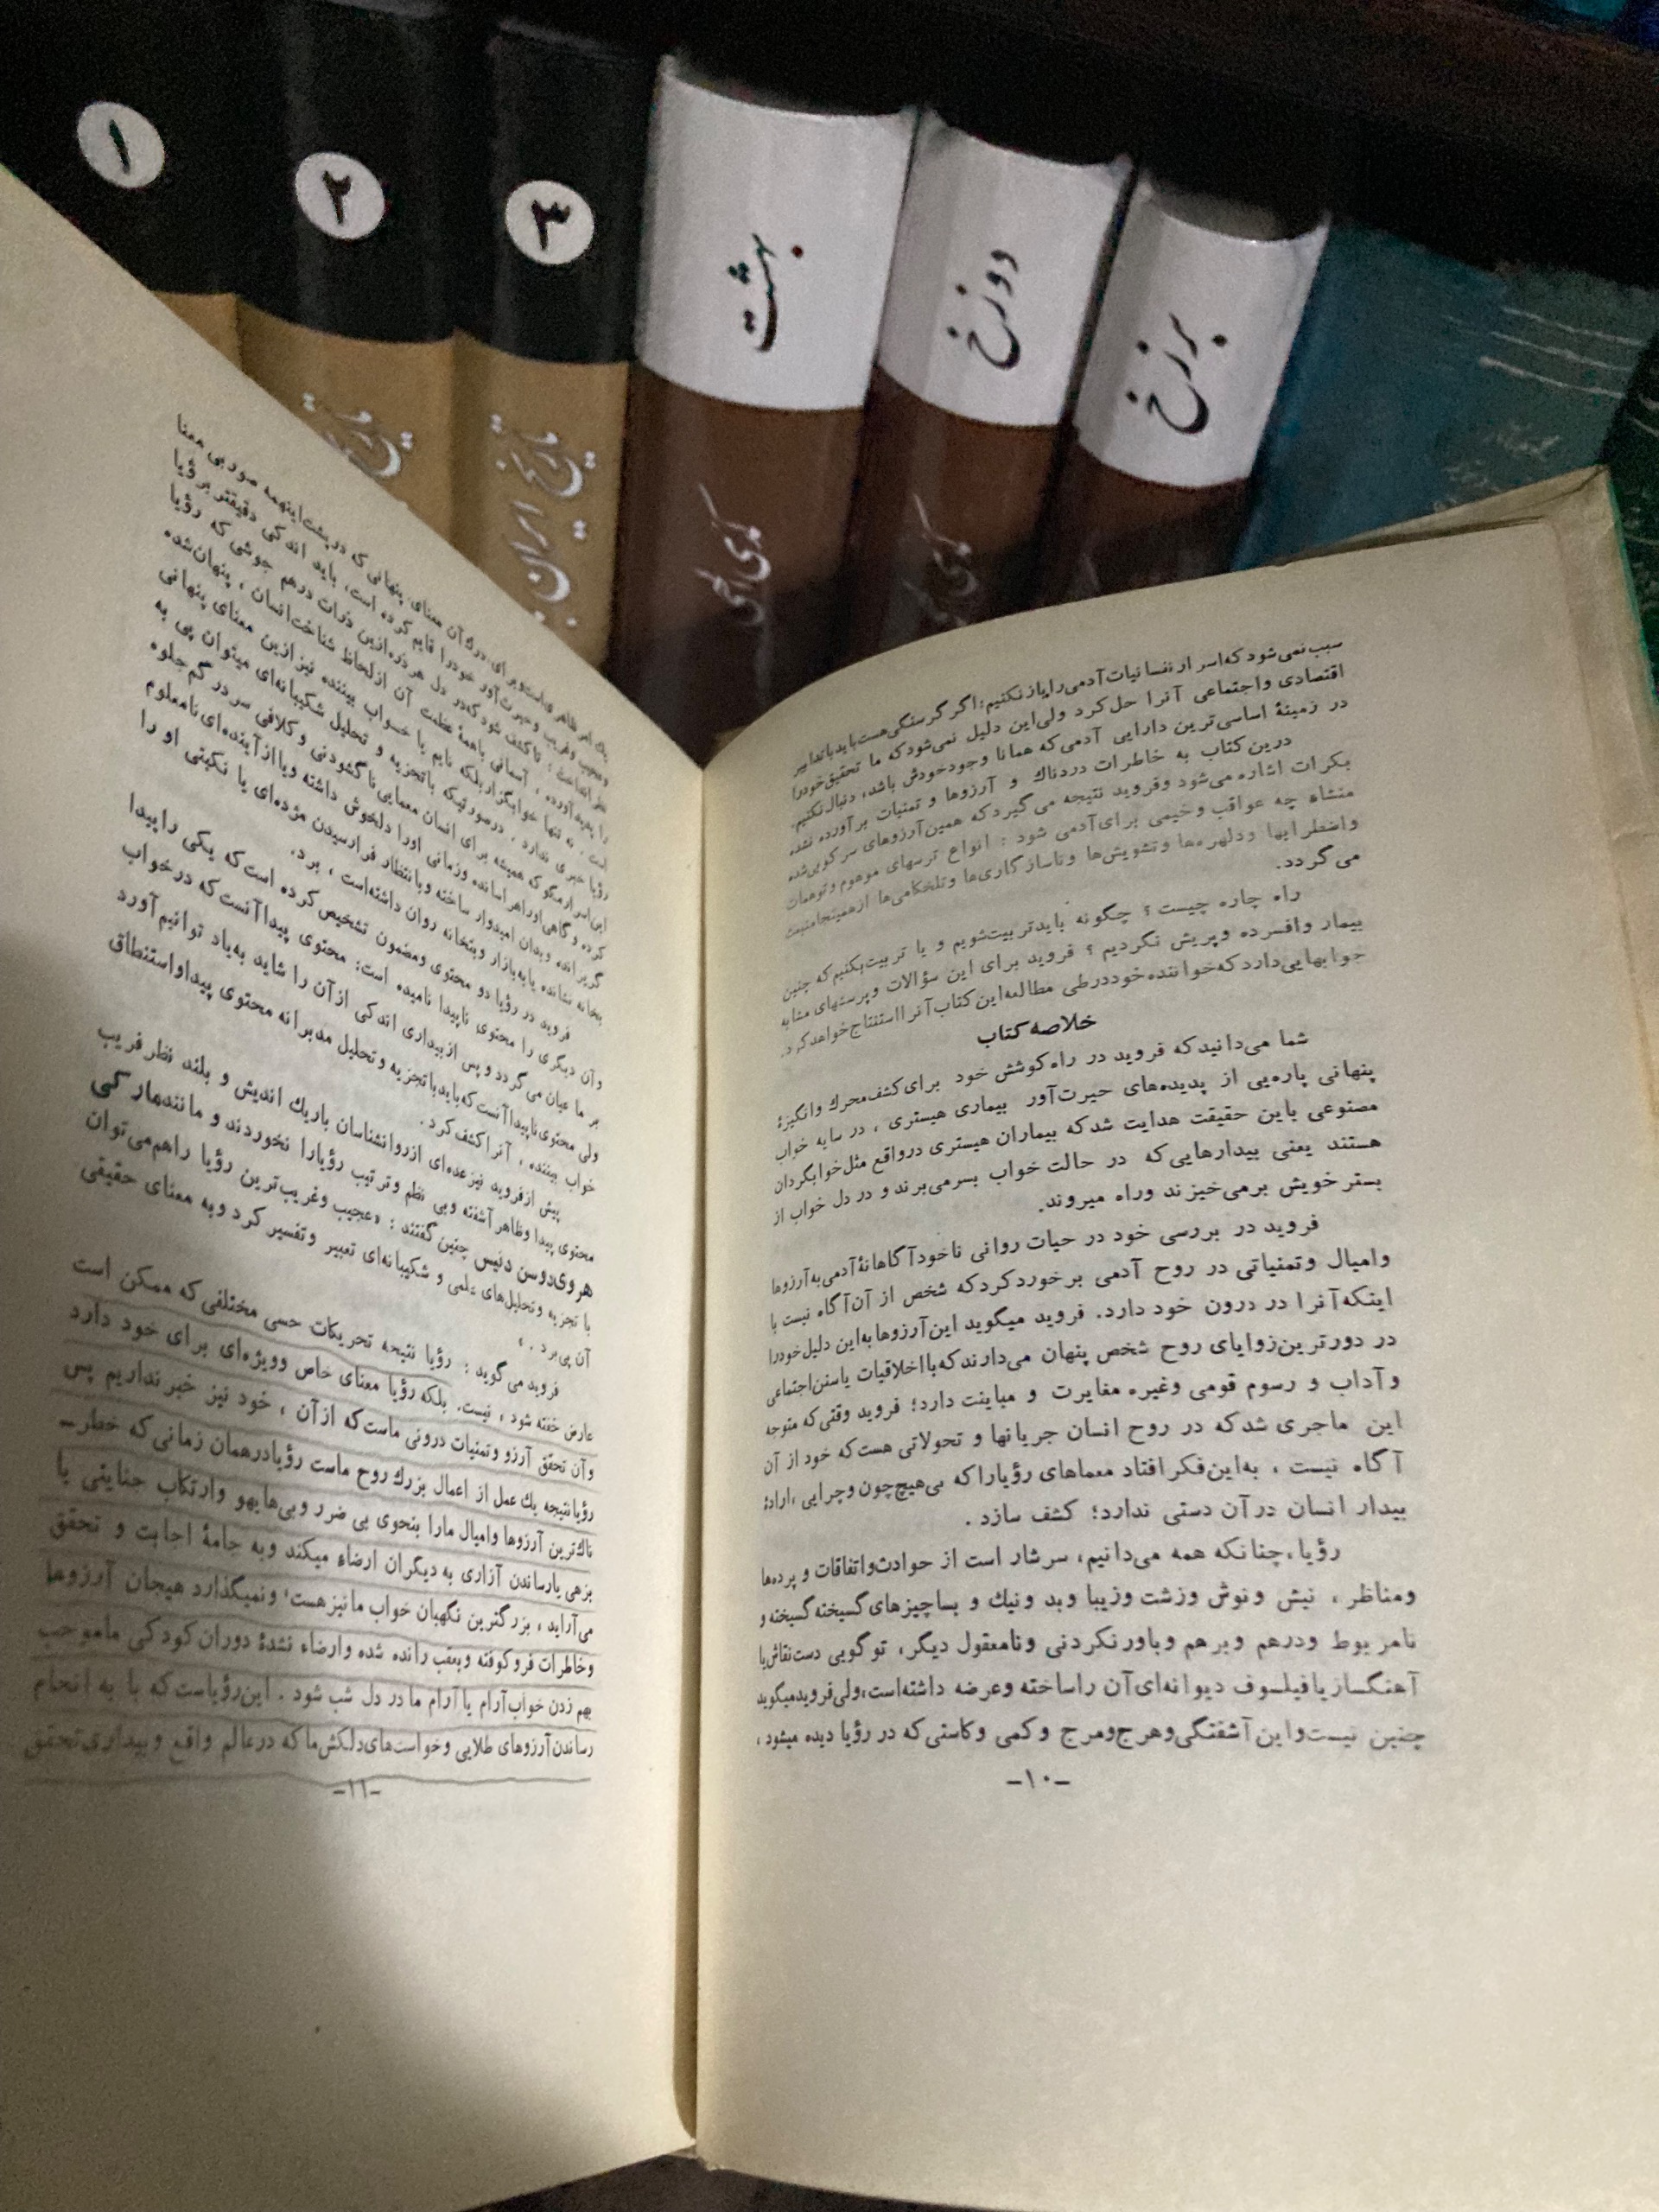 ۱
۲
۳
بهشت
دوزخ
برزخ
تاریخ ایران
کمدی الهی
کمدی الهی
سبب نمی‌شود که اسرار نفسانیات آدمی را باز نکنیم؛ اگر گرسنگی هست باید با تدابیر
اقتصادی و اجتماعی آنرا حل کرد ولی این دلیل نمی‌شود که ما تحقیق خود را
در زمینهٔ اساسی‌ترین دارایی آدمی که همانا وجود خودش باشد، دنبال نکنیم.
درین کتاب به خاطرات دردناك و آرزوها و تمنیات برآورده نشده
بکرات اشاره می‌شود و فروید نتیجه می‌گیرد که همین آرزوهای سرکوبی شده
منشاء چه عواقب وخیمی برای آدمی شود : انواع ترسهای موهوم و توهمات
واضطرابها و دلهره‌ها و تشویش‌ها و ناسازگاری‌ها و تلخکامی‌ها از همینجا منبعث
می‌گردد.
راه چاره چیست ؟ چگونه باید تربیت شویم و یا تربیت بکنیم که چنین
بیمار و افسرده و پریش نگردیم ؟ فروید برای این سؤالات و پرسشهای مشابه
جوابهایی دارد که خواننده خود در طی مطالعه این کتاب آنرا استنتاج خواهد کرد.
خلاصه کتاب
شما می‌دانید که فروید در راه کوشش خود برای کشف محرك و انگیزهٔ
پنهانی پاره‌یی از پدیده‌های حیرت‌آور بیماری هیستری ، در سایه خواب
مصنوعی باین حقیقت هدایت شد که بیماران هیستری درواقع مثل خوابگردان
هستند یعنی بیدارهایی که در حالت خواب بسر می‌برند و در دل خواب از
بستر خویش برمی‌خیزند و راه میروند.
فروید در بررسی خود در حیات روانی ناخودآگاهانهٔ آدمی به آرزوها
وامیال و تمنیاتی در روح آدمی برخورد کرد که شخص از آن آگاه نیست با
اینکه آنرا در درون خود دارد. فروید میگوید این آرزوها به این دلیل خود را
در دورترین زوایای روح شخص پنهان می‌دارند که با اخلاقیات یا سنن اجتماعی
و آداب و رسوم قومی وغیره مغایرت و مباینت دارد؛ فروید وقتی که متوجه
این ماجری شد که در روح انسان جریانها و تحولاتی هست که خود از آن
آگاه نیست ، به این فکر افتاد معماهای رؤیا را که بی‌هیچ چون و چرایی ، ارادهٔ
بیدار انسان در آن دستی ندارد؛ کشف سازد .
رؤیا، چنانکه همه می‌دانیم، سرشار است از حوادث و اتفاقات و پرده‌ها
ومناظر ، نیش و نوش و زشت و زیبا و بد و نیك و بسا چیزهای گسیخته گسیخته و
نامربوط و درهم و برهم و باور نکردنی و نامعقول دیگر، تو گویی دست نقاش یا
آهنگساز یا فیلسوف دیوانه‌ای آن را ساخته و عرضه داشته است، ولی فروید میگوید
چنین نیست و این آشفتگی و هرج و مرج و کمی و کاستی که در رؤیا دیده میشود ،
-۱۰-
یك امر ظاهری است و برای درك آن معنای پنهانی که در پشت اینهمه صور بی معنا
وعجیب و غریب و حیرت‌آور خود را قایم کرده است، باید اندکی دقیقتر بر رؤیا
نظر انداخت ؛ تا کشف شود که در دل هر ذره ازین ذرات درهم جوشی که رؤیا
را پدید آورده ، آسمانی با همهٔ عظمت آن از لحاظ شناخت انسان ، پنهان شده
است . نه تنها خوابگزار بلکه نایم یا خواب بیننده نیز ازین معنای پنهانی
رؤیا خبری ندارد . درصورتیکه با تجزیه و تحلیل شکیبانه‌ای میتوان پی به
این اسرار مگو که همیشه برای انسان معمایی ناگشودنی و کلافی سر در گم جلوه
کرده و گاهی اورا هراسانده و زمانی اورا دلخوش داشته و یا از آینده‌ای نامعلوم
گریزانده و بدان امیدوار ساخته و یا بانتظار فرارسیدن مژده‌ای یا نکبتی او را
بخانه نشانده یا به بازار و بتخانه روان داشته است ، برد.
فروید در رؤیا دو محتوی و مضمون تشخیص کرده است که یکی را پیدا
و آن دیگری را محتوی ناپیدا نامیده است: محتوی پیدا آنست که در خواب
بر ما عیان می‌گردد و پس از بیداری اندکی از آن را شاید به‌یاد توانیم آورد
ولی محتوی ناپیدا آنست که باید با تجزیه و تحلیل مدبرانه محتوی پیدا و استنطاق
خواب بیننده ، آنرا کشف کرد .
پیش از فروید نیز عده‌ای از روانشناسان باریك اندیش و بلند نظر فریب
محتوی پیدا و ظاهر آشفته و بی نظم و ترتیب رؤیا را نخوردند و مانند مارکی
هروی دوسن دنیس چنین گفتند : «عجیب و غریب‌ترین رؤیا را هم می‌توان
با تجزیه و تحلیل‌های علمی و شکیبانه‌ای تعبیر و تفسیر کرد و به معنای حقیقی
آن پی برد . »
فروید می گوید : رؤیا نتیجه تحریکات حسی مختلفی که ممکن است
عارض خفته شود ، نیست. بلکه رؤیا معنای خاص و ویژه‌ای برای خود دارد
وآن تحقق آرزو و تمنیات درونی ماست که از آن ، خود نیز خبر نداریم پس
رؤیا نتیجه یك عمل از اعمال بزرك روح ماست رؤیا درهمان زمانی که خطر-
ناك‌ترین آرزوها و امیال مارا بنحوی بی ضرر و بی‌هایهو و ارتکاب جنایتی یا
بزهی یا رساندن آزاری به دیگران ارضاء میکند و به جامهٔ اجابت و تحقق
می‌آراید ، بزرگترین نگهبان خواب ما نیز هست؛ و نمیگذارد هیجان آرزوها
و خاطرات فروکوفته و بعقب رانده شده و ارضاء نشدهٔ دوران کودکی ما موجب
بهم زدن خواب آرام یا آرام ما در دل شب شود . این رؤیاست که با به انجام
رساندن آرزوهای طلایی و خواست‌های دلکش ما که در عالم واقع و بیداری تحقق
-۱۱-